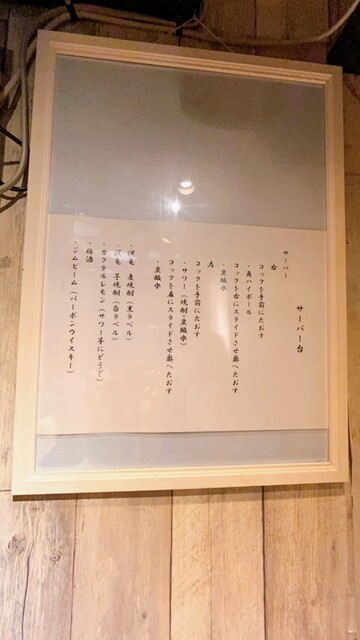 サーバー台
サーバー
右
コックを手前にたおす
・角ハイボール
コックを右にスライドさせ奥へたおす
・炭酸水
左
コックを手前にたおす
・サワー（焼酎+炭酸水）
コックを左にスライドさせ奥へたおす
・炭酸水
麦焼酎（黒ラベル）
芋焼酎（白ラベル）
・カクテルレモン（サワー等にどうぞ）
・梅酒
・ジムビーム（バーボンウイスキー）